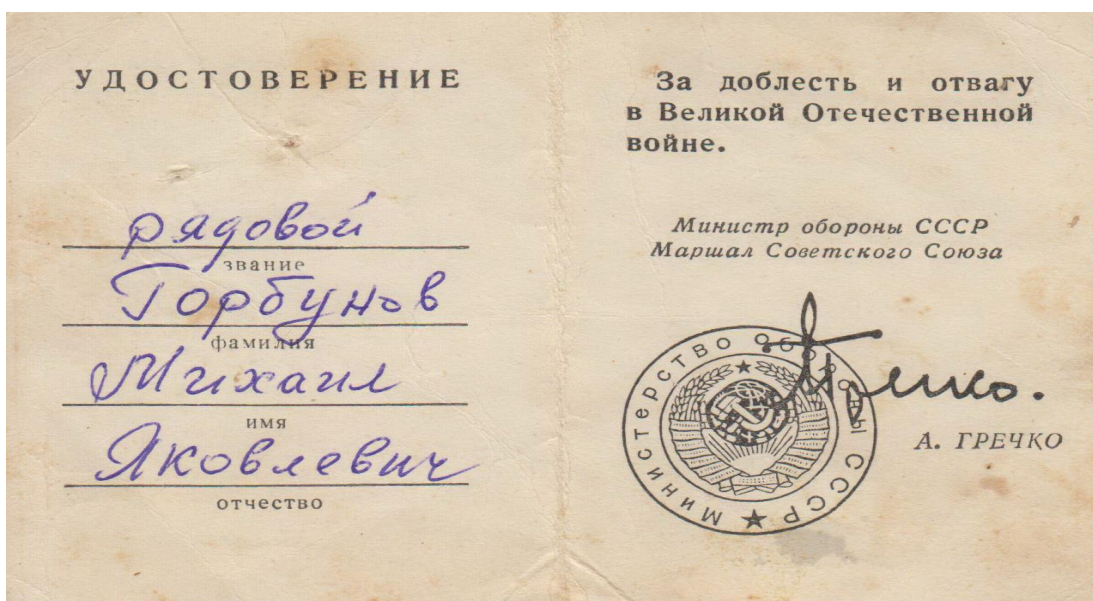 УДОСТОВЕРЕНИЕ
рядовой
звание
Горбунов
фамилия
Михаил
имя
Яковлевич
отчество
За доблесть и отвагу
в Великой Отечественной
войне.
Министр обороны СССР
Маршал Советского Союза
Министерство Обороны СССР
А. ГРЕЧКО